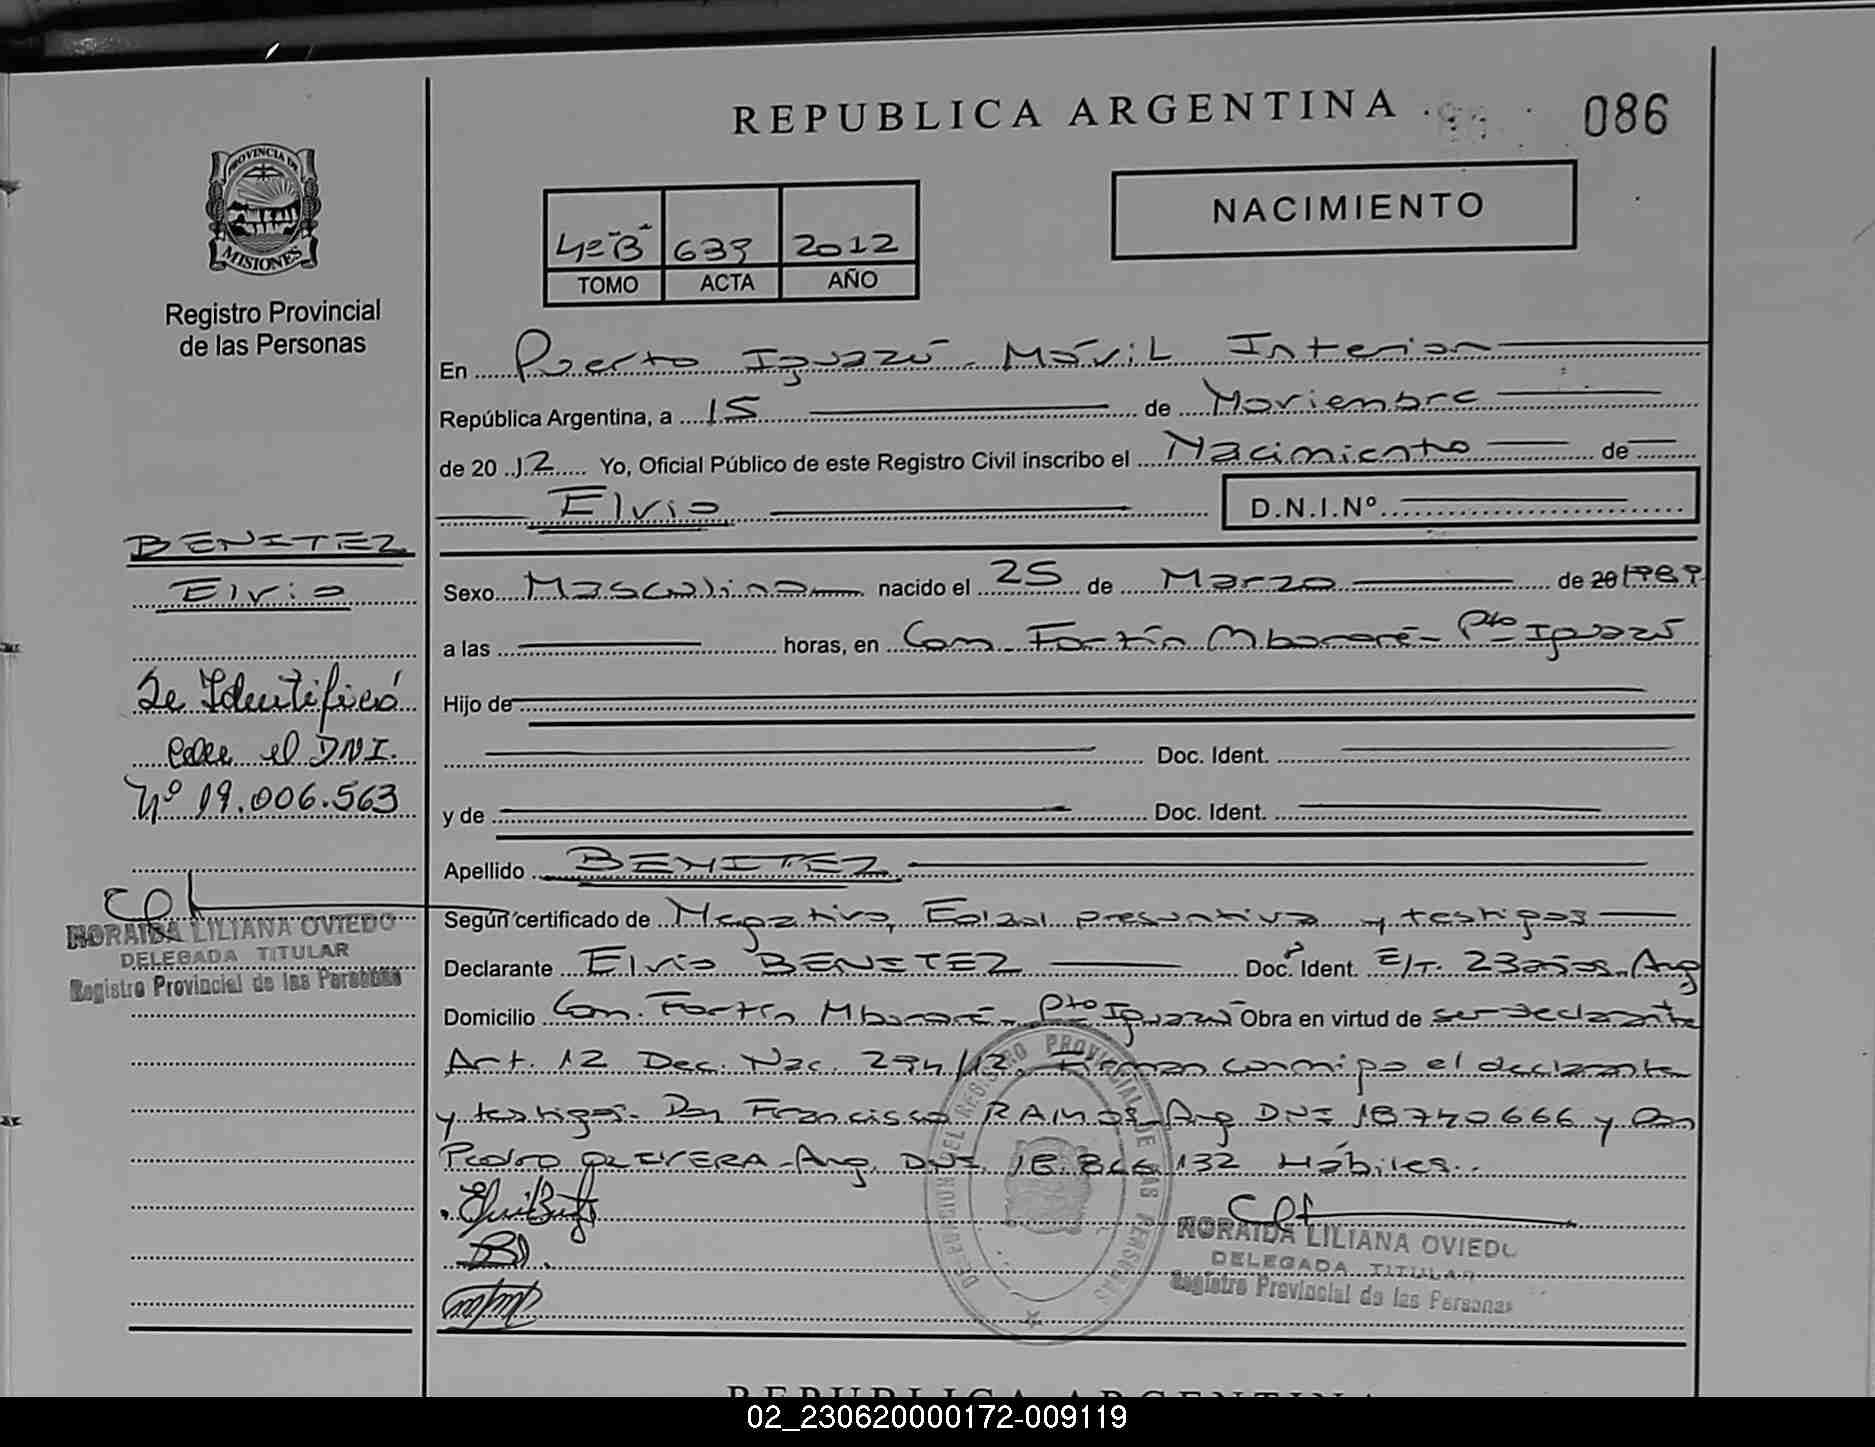 REPUBLICA ARGENTINA
086
PROVINCIA DE
MISIONES
Registro Provincial
de las Personas
NACIMIENTO
4º "B" 639 2012
TOMO ACTA AÑO
En Puerto Iguazú - Móvil Interior
República Argentina, a 15 de Noviembre
de 2012 Yo, Oficial Público de este Registro Civil inscribo el Nacimiento de
Elvio D.N.I.Nº
BENITEZ
Elvio
Se Identificó
el DNI.
Nº 19.006.563
NORAIDA LILIANA OVIEDO
DELEGADA TITULAR
Registro Provincial de las Personas
Sexo Masculino nacido el 25 de Marzo de 20 1989
a las horas, en Com. Fortín Mbororé - Pto Iguazú
Hijo de
Doc. Ident.
y de Doc. Ident.
Apellido BENITEZ
Según certificado de Negativo, Edad presuntiva y testigos
Declarante Elvio BENITEZ Doc. Ident. E/T. 23 años - Arg
Domicilio Com. Fortín Mbororé - Pto Iguazú Obra en virtud de ser declarante
Art. 12 Dec. Nac. 294/12. Firman conmigo el declarante
y testigos. Don Francisco RAMOS - Arg DNI 18.740.666 y Don
Pedro OLIVERA - Arg. DNI. 18.866.132 Hábiles.
DELEGACION DEL REGISTRO PROVINCIAL DE LAS PERSONAS
NORAIDA LILIANA OVIEDO
DELEGADA TITULAR
Registro Provincial de las Personas
REPUBLICA ARGENTINA
02_230620000172-009119